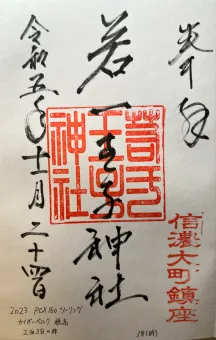 奉拝
若一王子神社
若一王子神社
信濃大町鎮座
令和五年十一月二十四日
2023 PCX160 ツーリング
カイザーベルク 穂高
2泊3日の旅